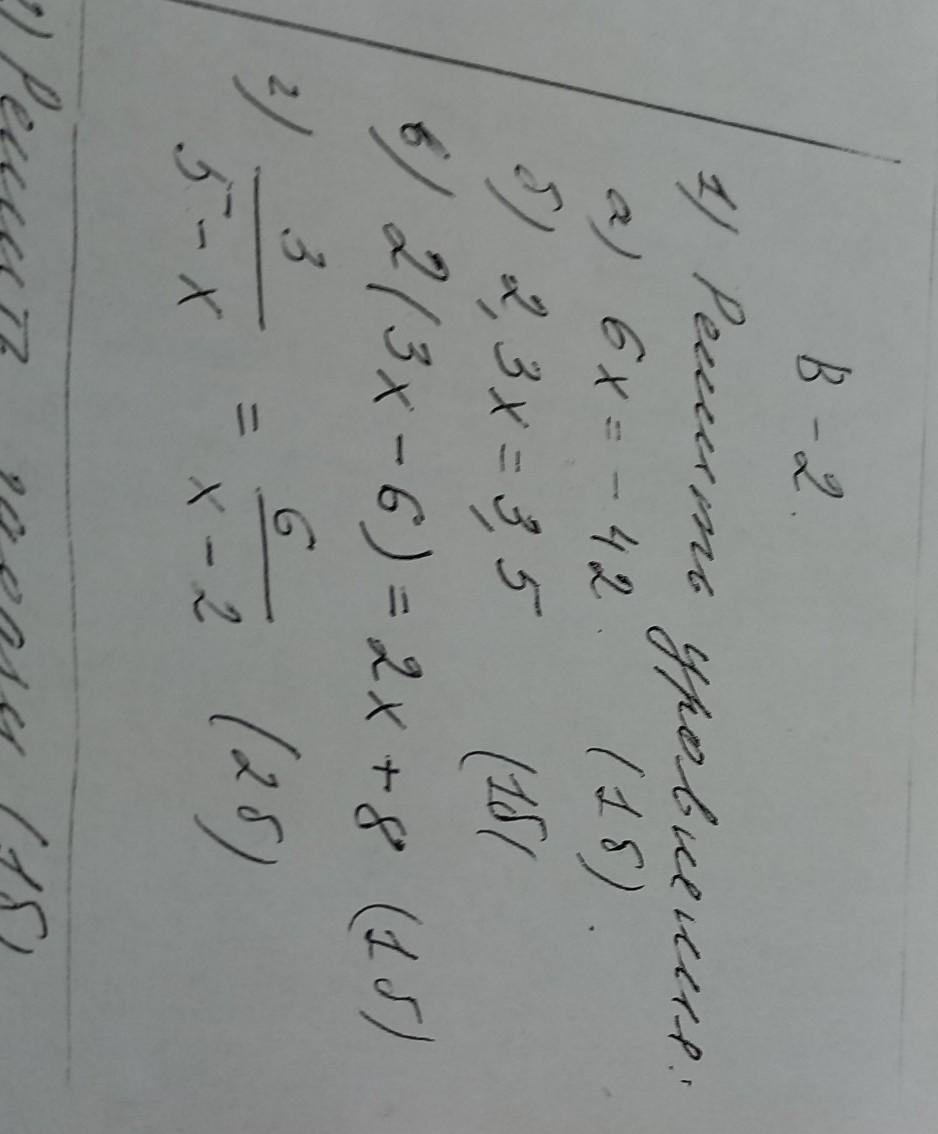 В-2.
1) Решить уравнения:
а) 6x = -42. (1б).
б) 2,3x = 3,5 (1б)
в) 2(3x-6) = 2x+8 (1б)
г) 3/(5-x) = 6/(x-2) (2б)
2) Решить задачу (1б)